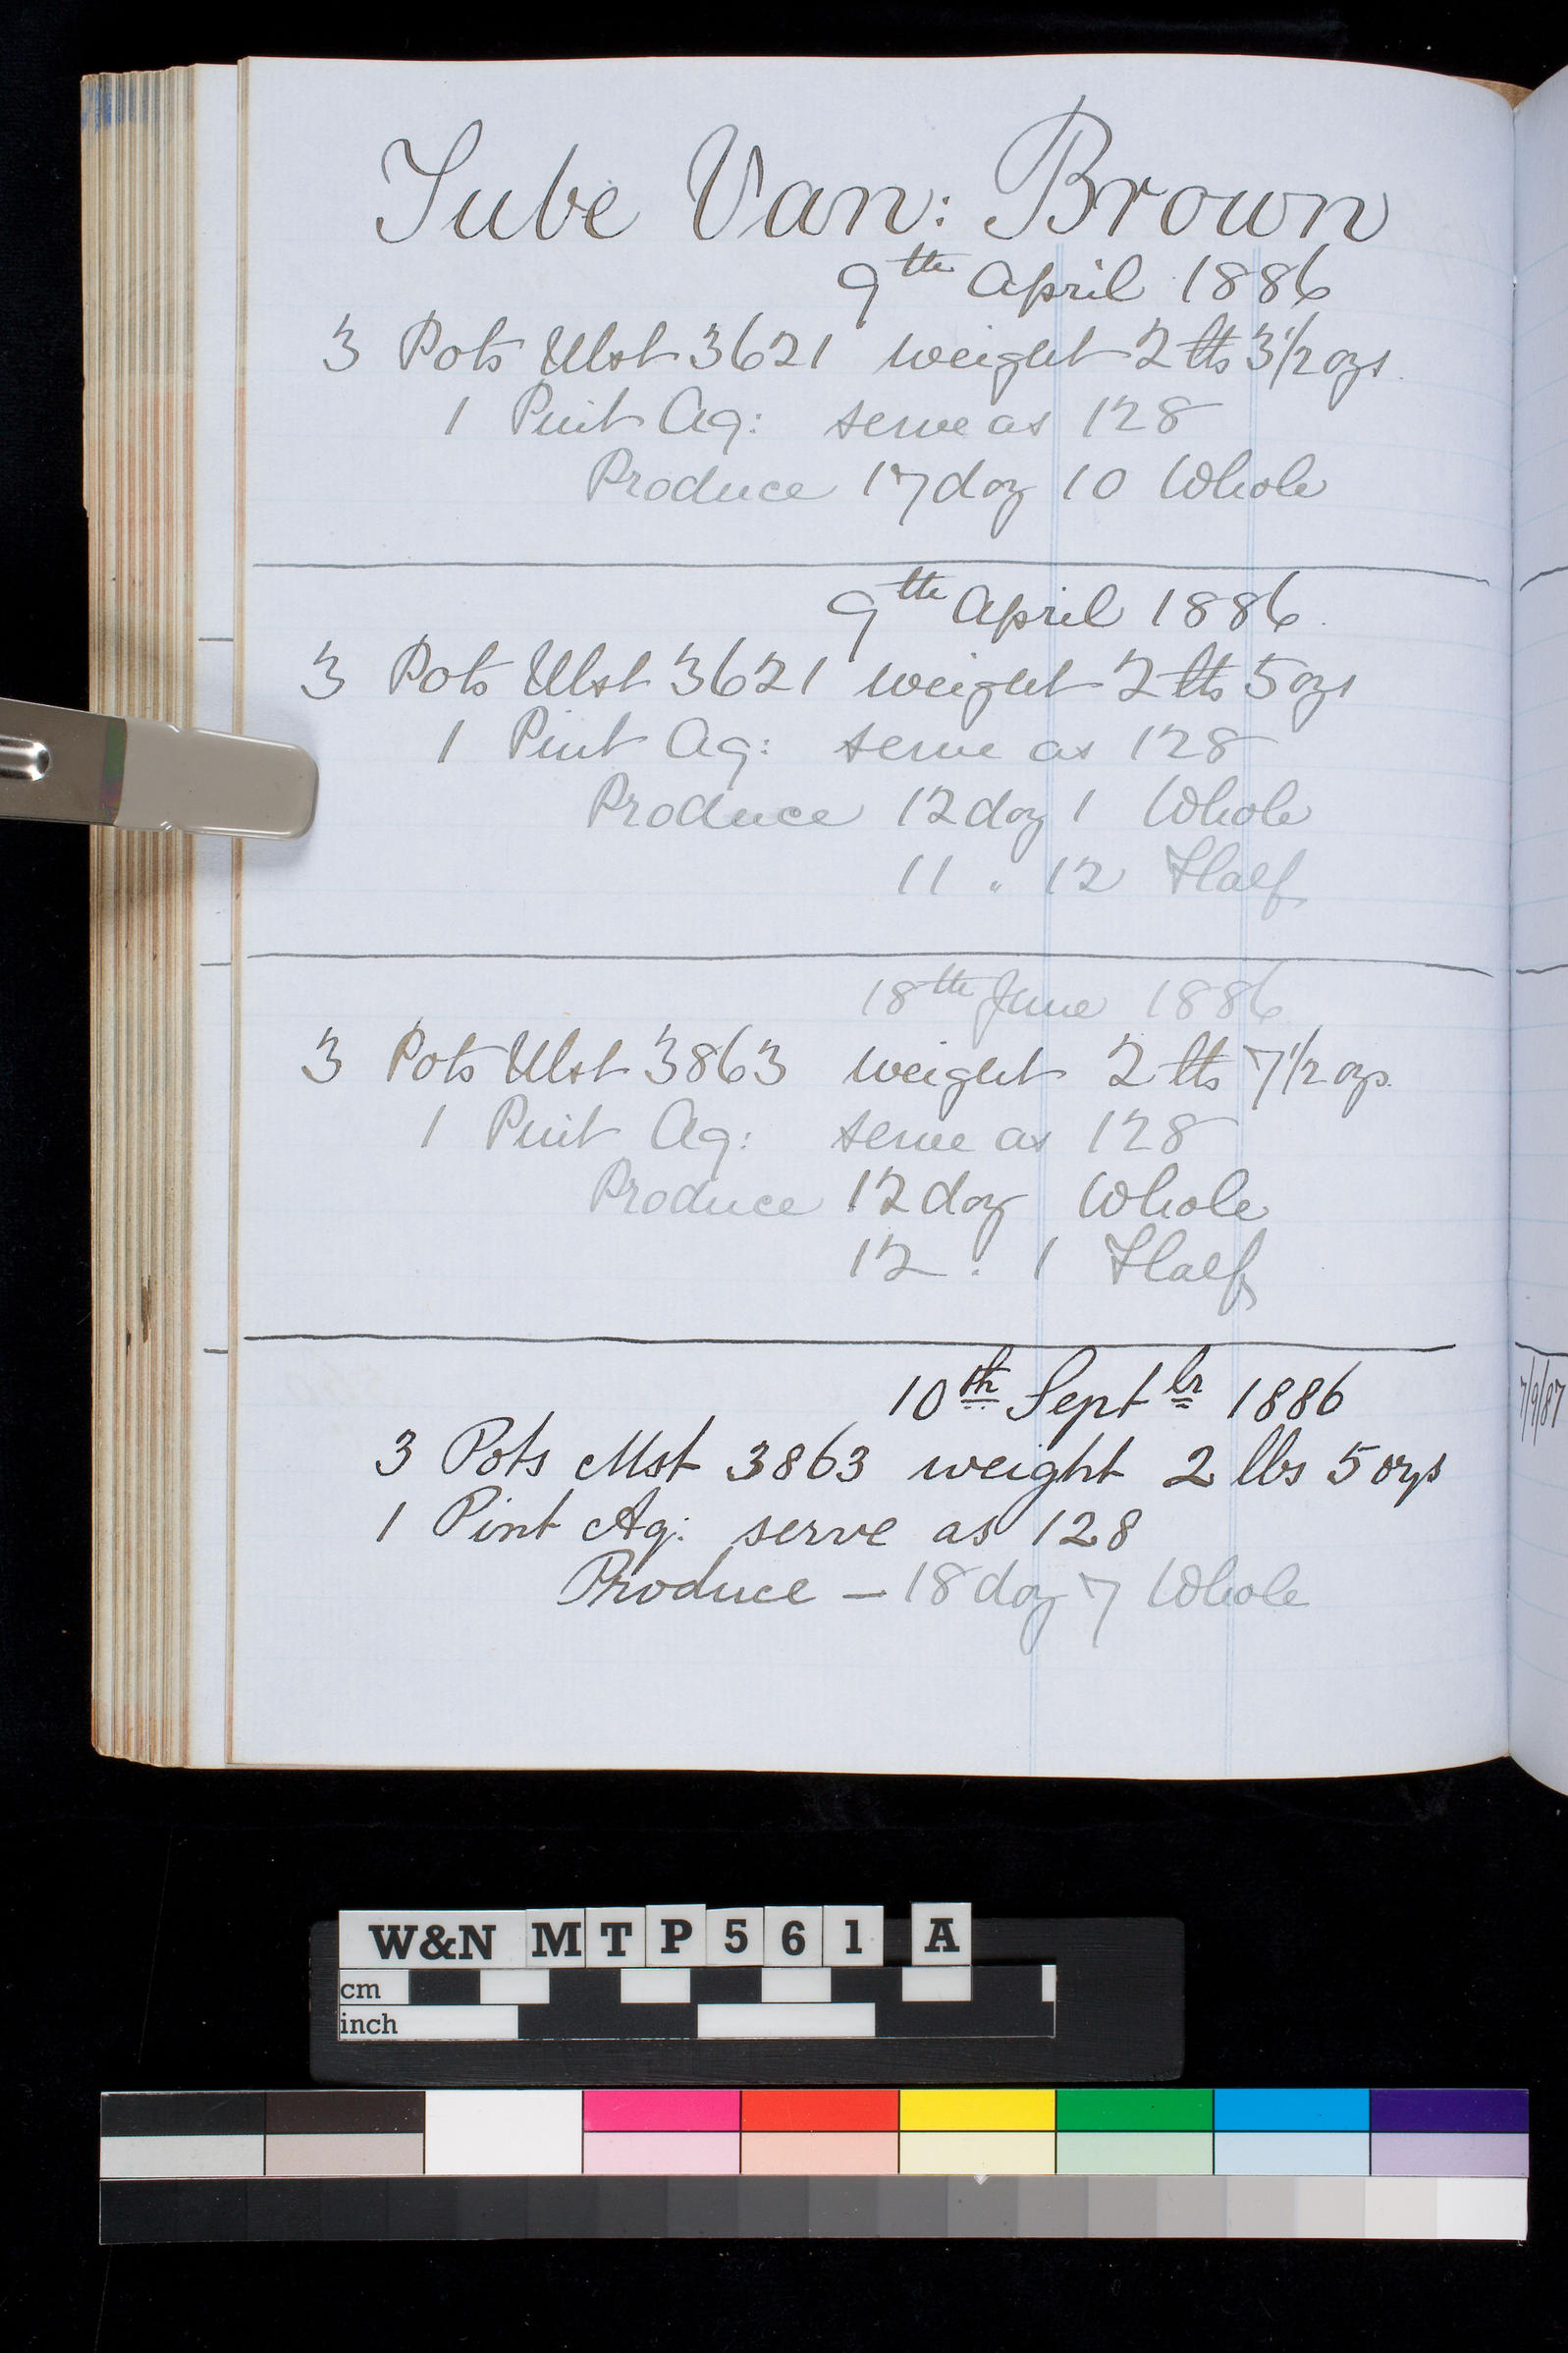 Tube Van: Brown
9th April 1886
3 Pots Ulst 3621 weight 2 lbs 3 1/2 ozs.
1 Pint Aq: serve as 128
Produce 17 doz 10 Whole
9th April 1886.
3 Pots Ulst 3621 weight 2 lbs 5 ozs
1 Pint Aq: serve as 128
Produce 12 doz 1 Whole
11 " 12 Half
18th June 1886
3 Pots Ulst 3863 weight 2 lbs 7 1/2 ozs.
1 Pint Aq: serve as 128
Produce 12 doz Whole
12 . 1 Half
10th Septbr 1886
3 Pots Mst 3863 weight 2 lbs 5 ozs
1 Pint Aq: serve as 128
Produce — 18 doz 7 Whole
7/9/87
W&N MTP561 A
cm
inch